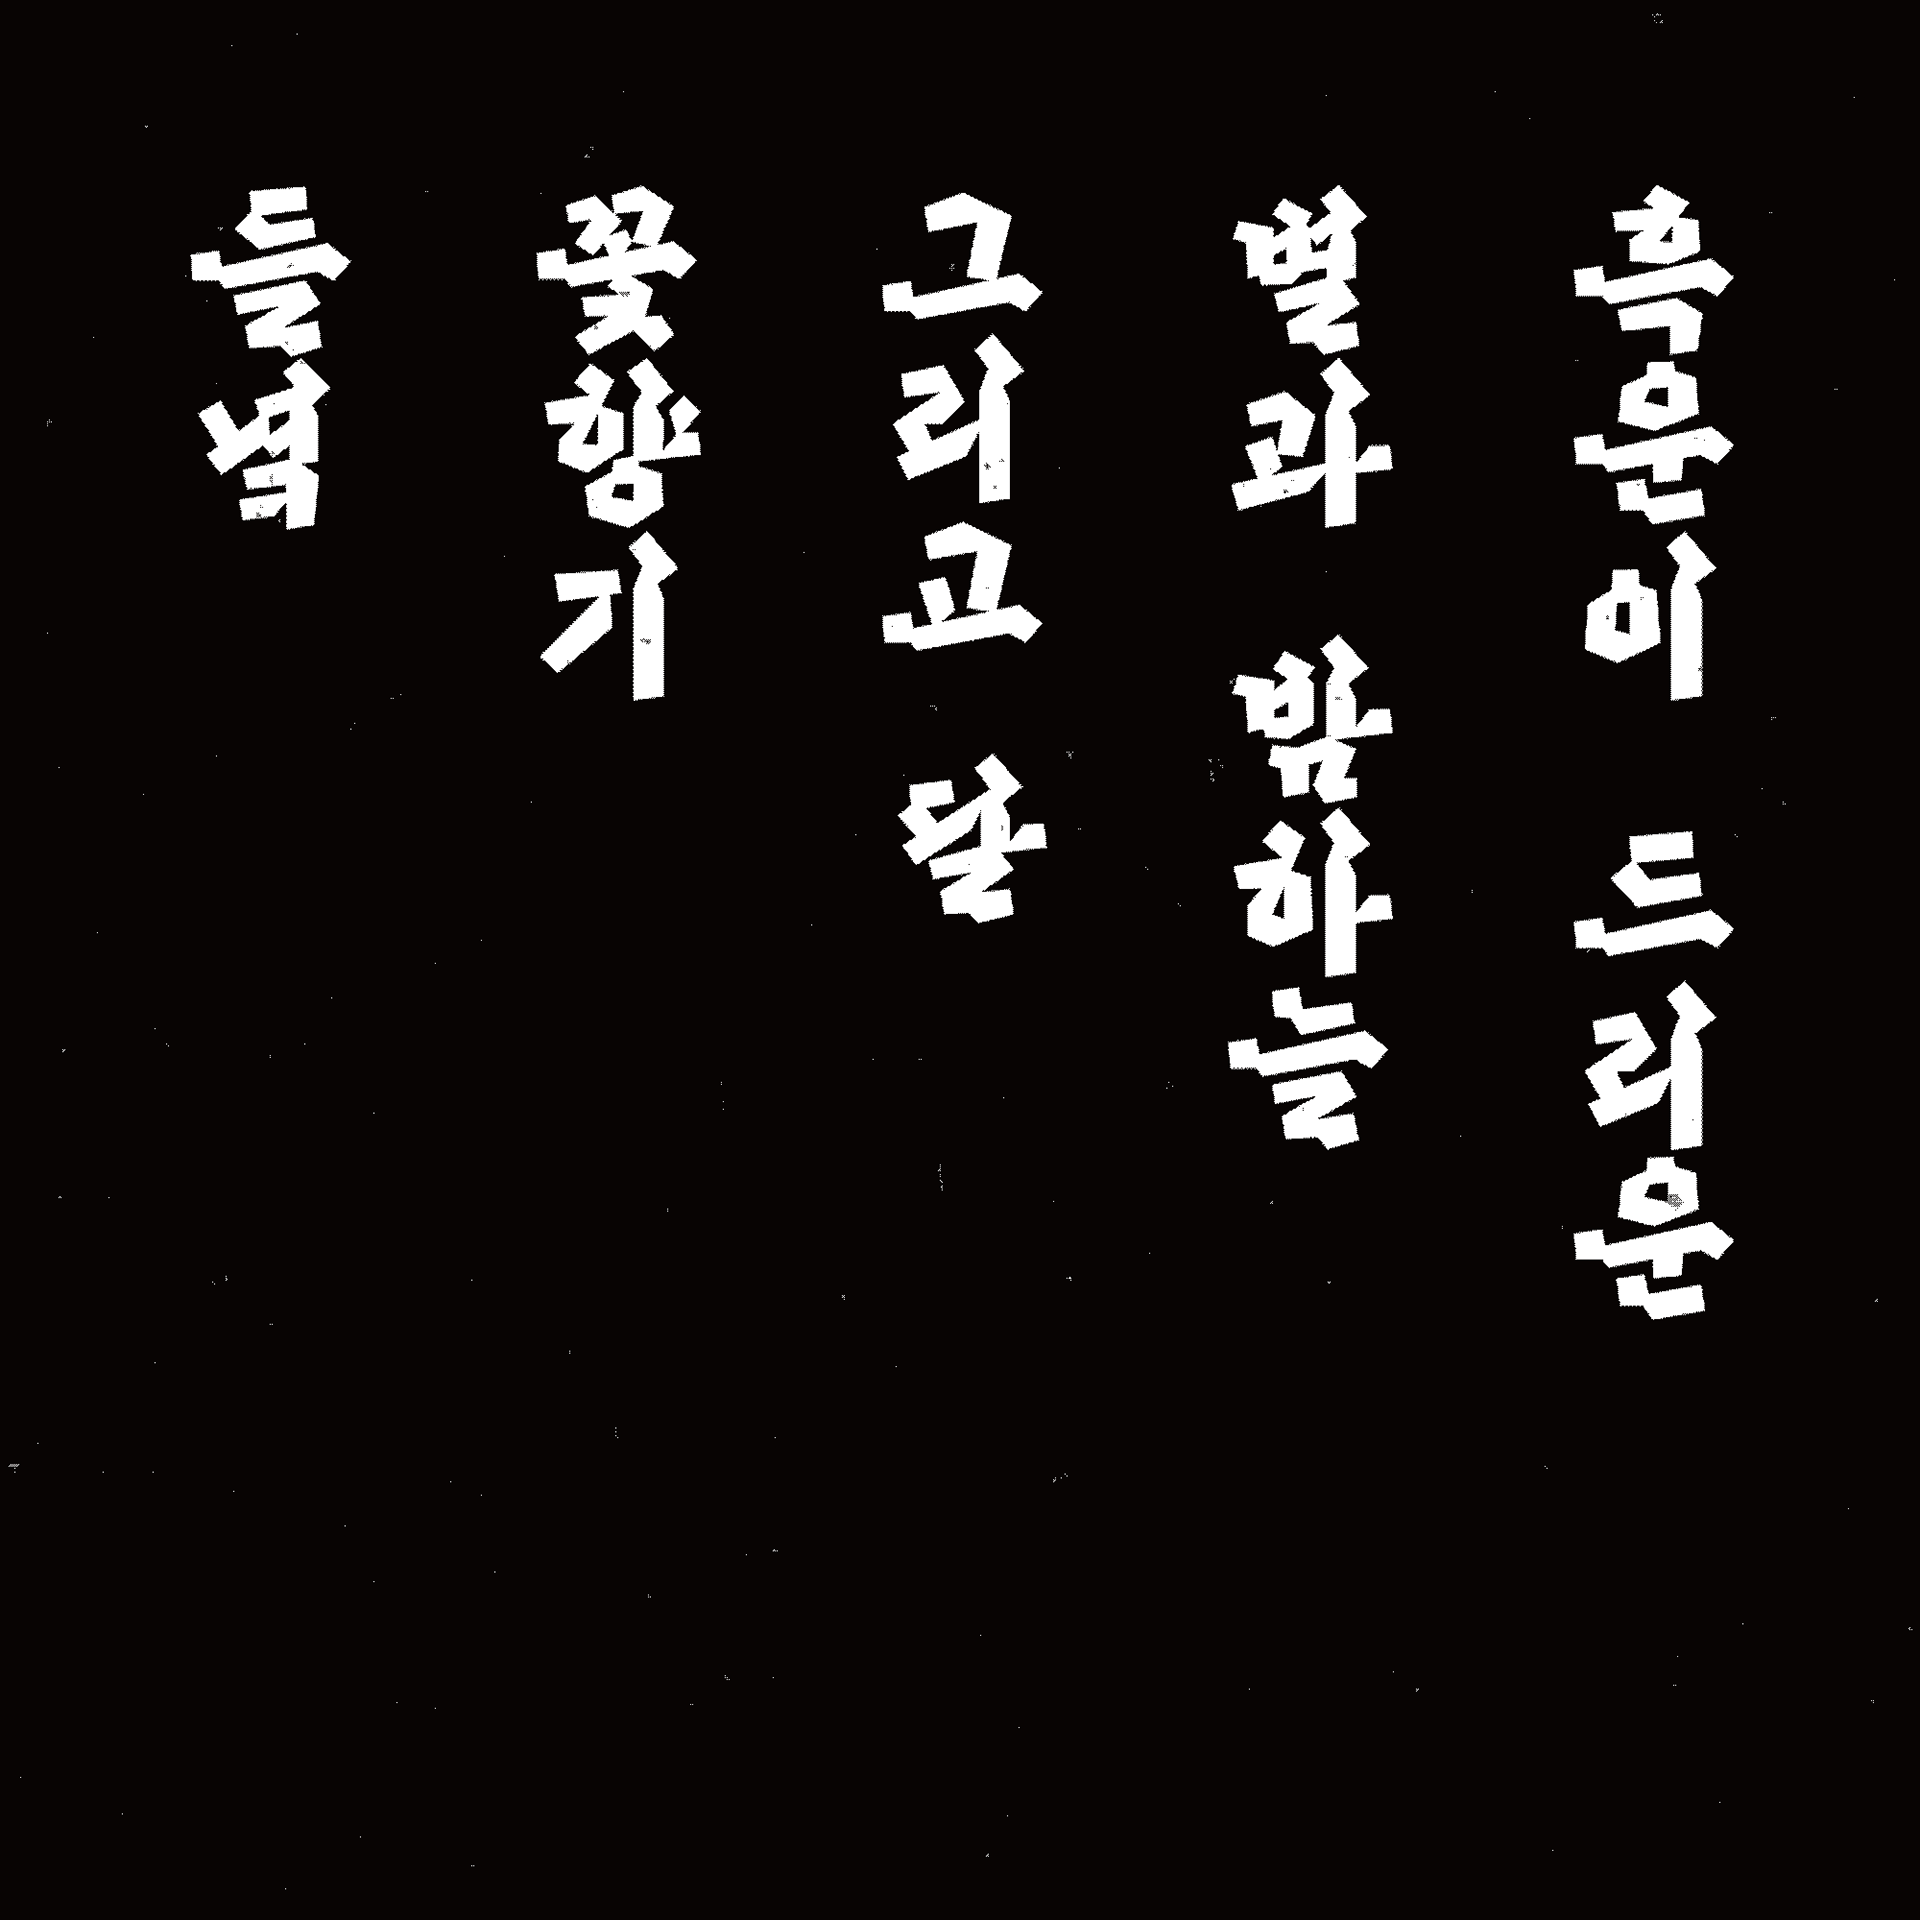 흑운이 드리운
별과 밤하늘
그리고 달
꽃향기
들녘